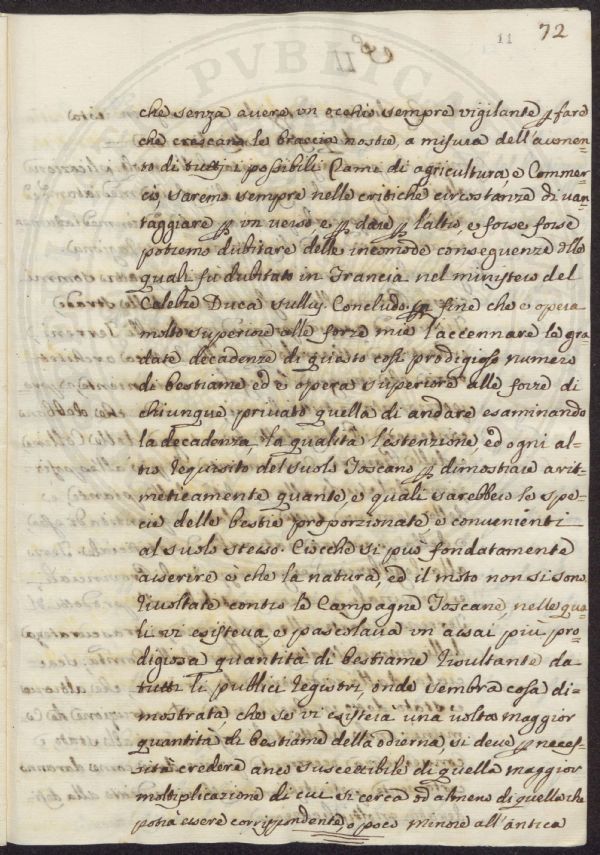 11 72
PVBLICA
che senza avere un occhio sempre vigilante p fare
che crescano le braccia nostre, a misura dell'aumen-
to di tutti i possibili Rami di agricultura, e Commer-
cio saremo sempre nelle critiche circostanze di van-
taggiare p un verso, e p dare p l'altro, e forse forse
potremo dubitare delle incomode conseguenze delle
quali fu dubitato in Francia nel ministero del
Celebre Duca Sully. Concludo in fine che è opera
molto superiore alle forze mie l'accennare le gra-
date decadenze di questo così prodigioso numero
di bestiame ed è opera superiore alle forze di
chiunque privato quella di andare esaminando
la decadenza, la qualità l'estenzione, ed ogni al=
tro requisito del suolo Toscano p dimostrare arit-
meticamente quante, e quali sarebbero le spe-
cie delle bestie proporzionate, e convenienti
al suolo stesso. Ciocche si può fondatamente
asserire è che la natura, ed il moto non si sono
rivoltate contro le Campagne Toscane, nelle qua-
li vi esisteva, e pascolava un assai più pro-
digiosa quantità di bestiame resultante da
tutti li publici registri, onde sembra cosa di-
mostrata, che se vi esisteva una volta maggior
quantità di bestiame della odierna, si deve p neces-
sità credere anco suscettibile di quella maggior
moltiplicazione di cui si cerca od almeno di quella che
potrà essere corrispondente, o poco minore all'antica